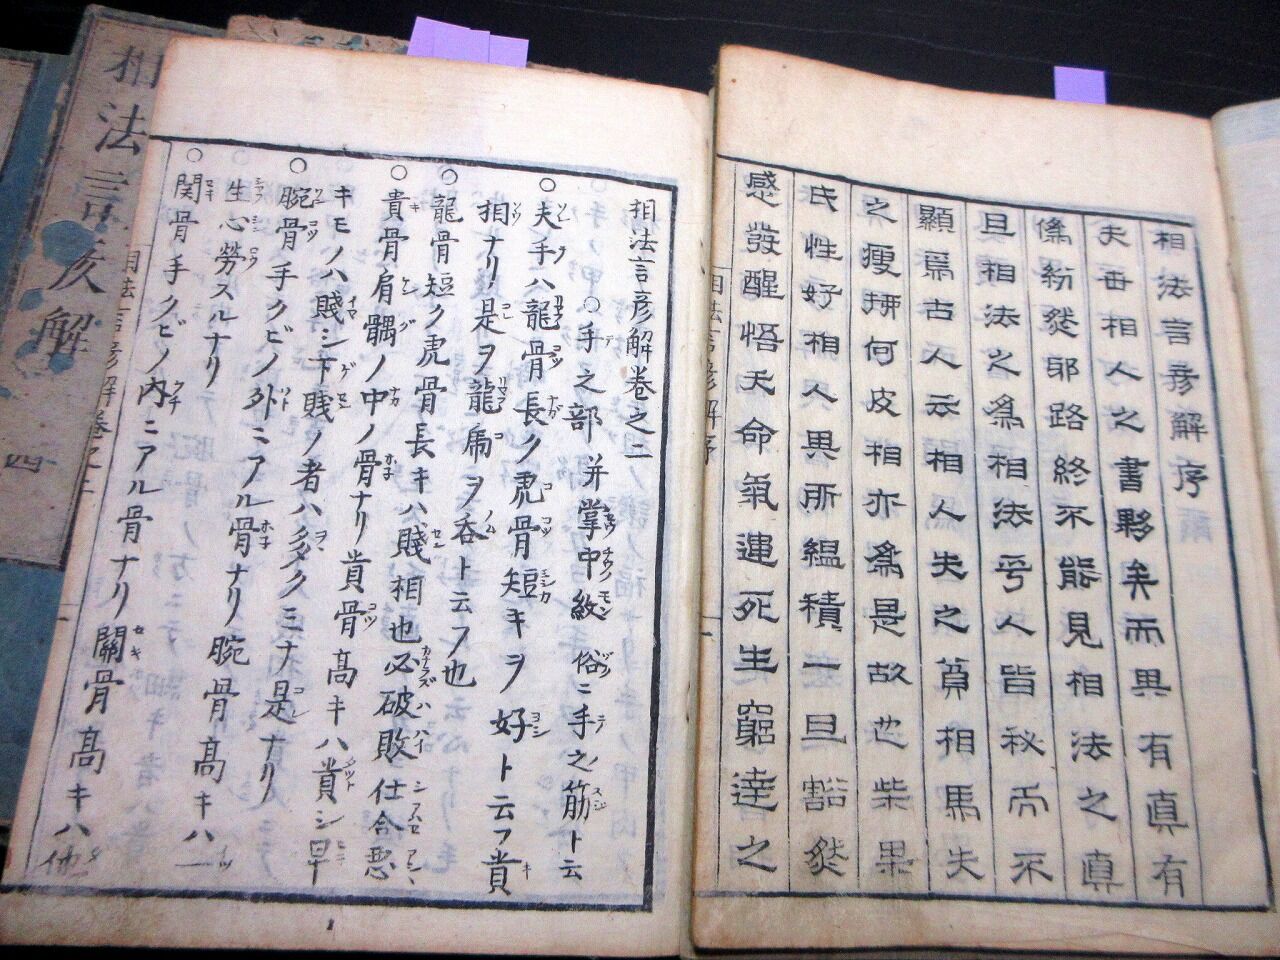 相法言彦解序
夫毎相人之書夥矣而異有真有
偽紛然耶路終不能見相法之真
且相法之為相法乎人皆秘而不
顯焉古人云相人失之貧相馬失
之瘦拼何皮相亦為是故芯柴果
氏性好相人異所縕積一旦豁然
感發醒悟天命氣運死生窮達之
相法言彦解序
相法言彦解巻之二
○手之部 并掌中紋 俗ニ手之筋ト云
○夫手ハ龍骨長ク虎骨短キヲ好ト云フ貴
相ナリ是ヲ龍虎ヲ呑ト云フ也
○龍骨短ク虎骨長キハ賤相也必破敗仕合悪
○貴骨肩髃ノ中ノ骨ナリ貴骨高キハ貴シ早
キモノハ賤シ下賤ノ者ハ多クミナ是ナリ
○腕骨手クビノ外ニアル骨ナリ腕骨高キハ一
生心労スルナリ
○関骨手クビノ内ニアル骨ナリ關骨高キハ他
相法言彦解巻之二
相法言彦解
四